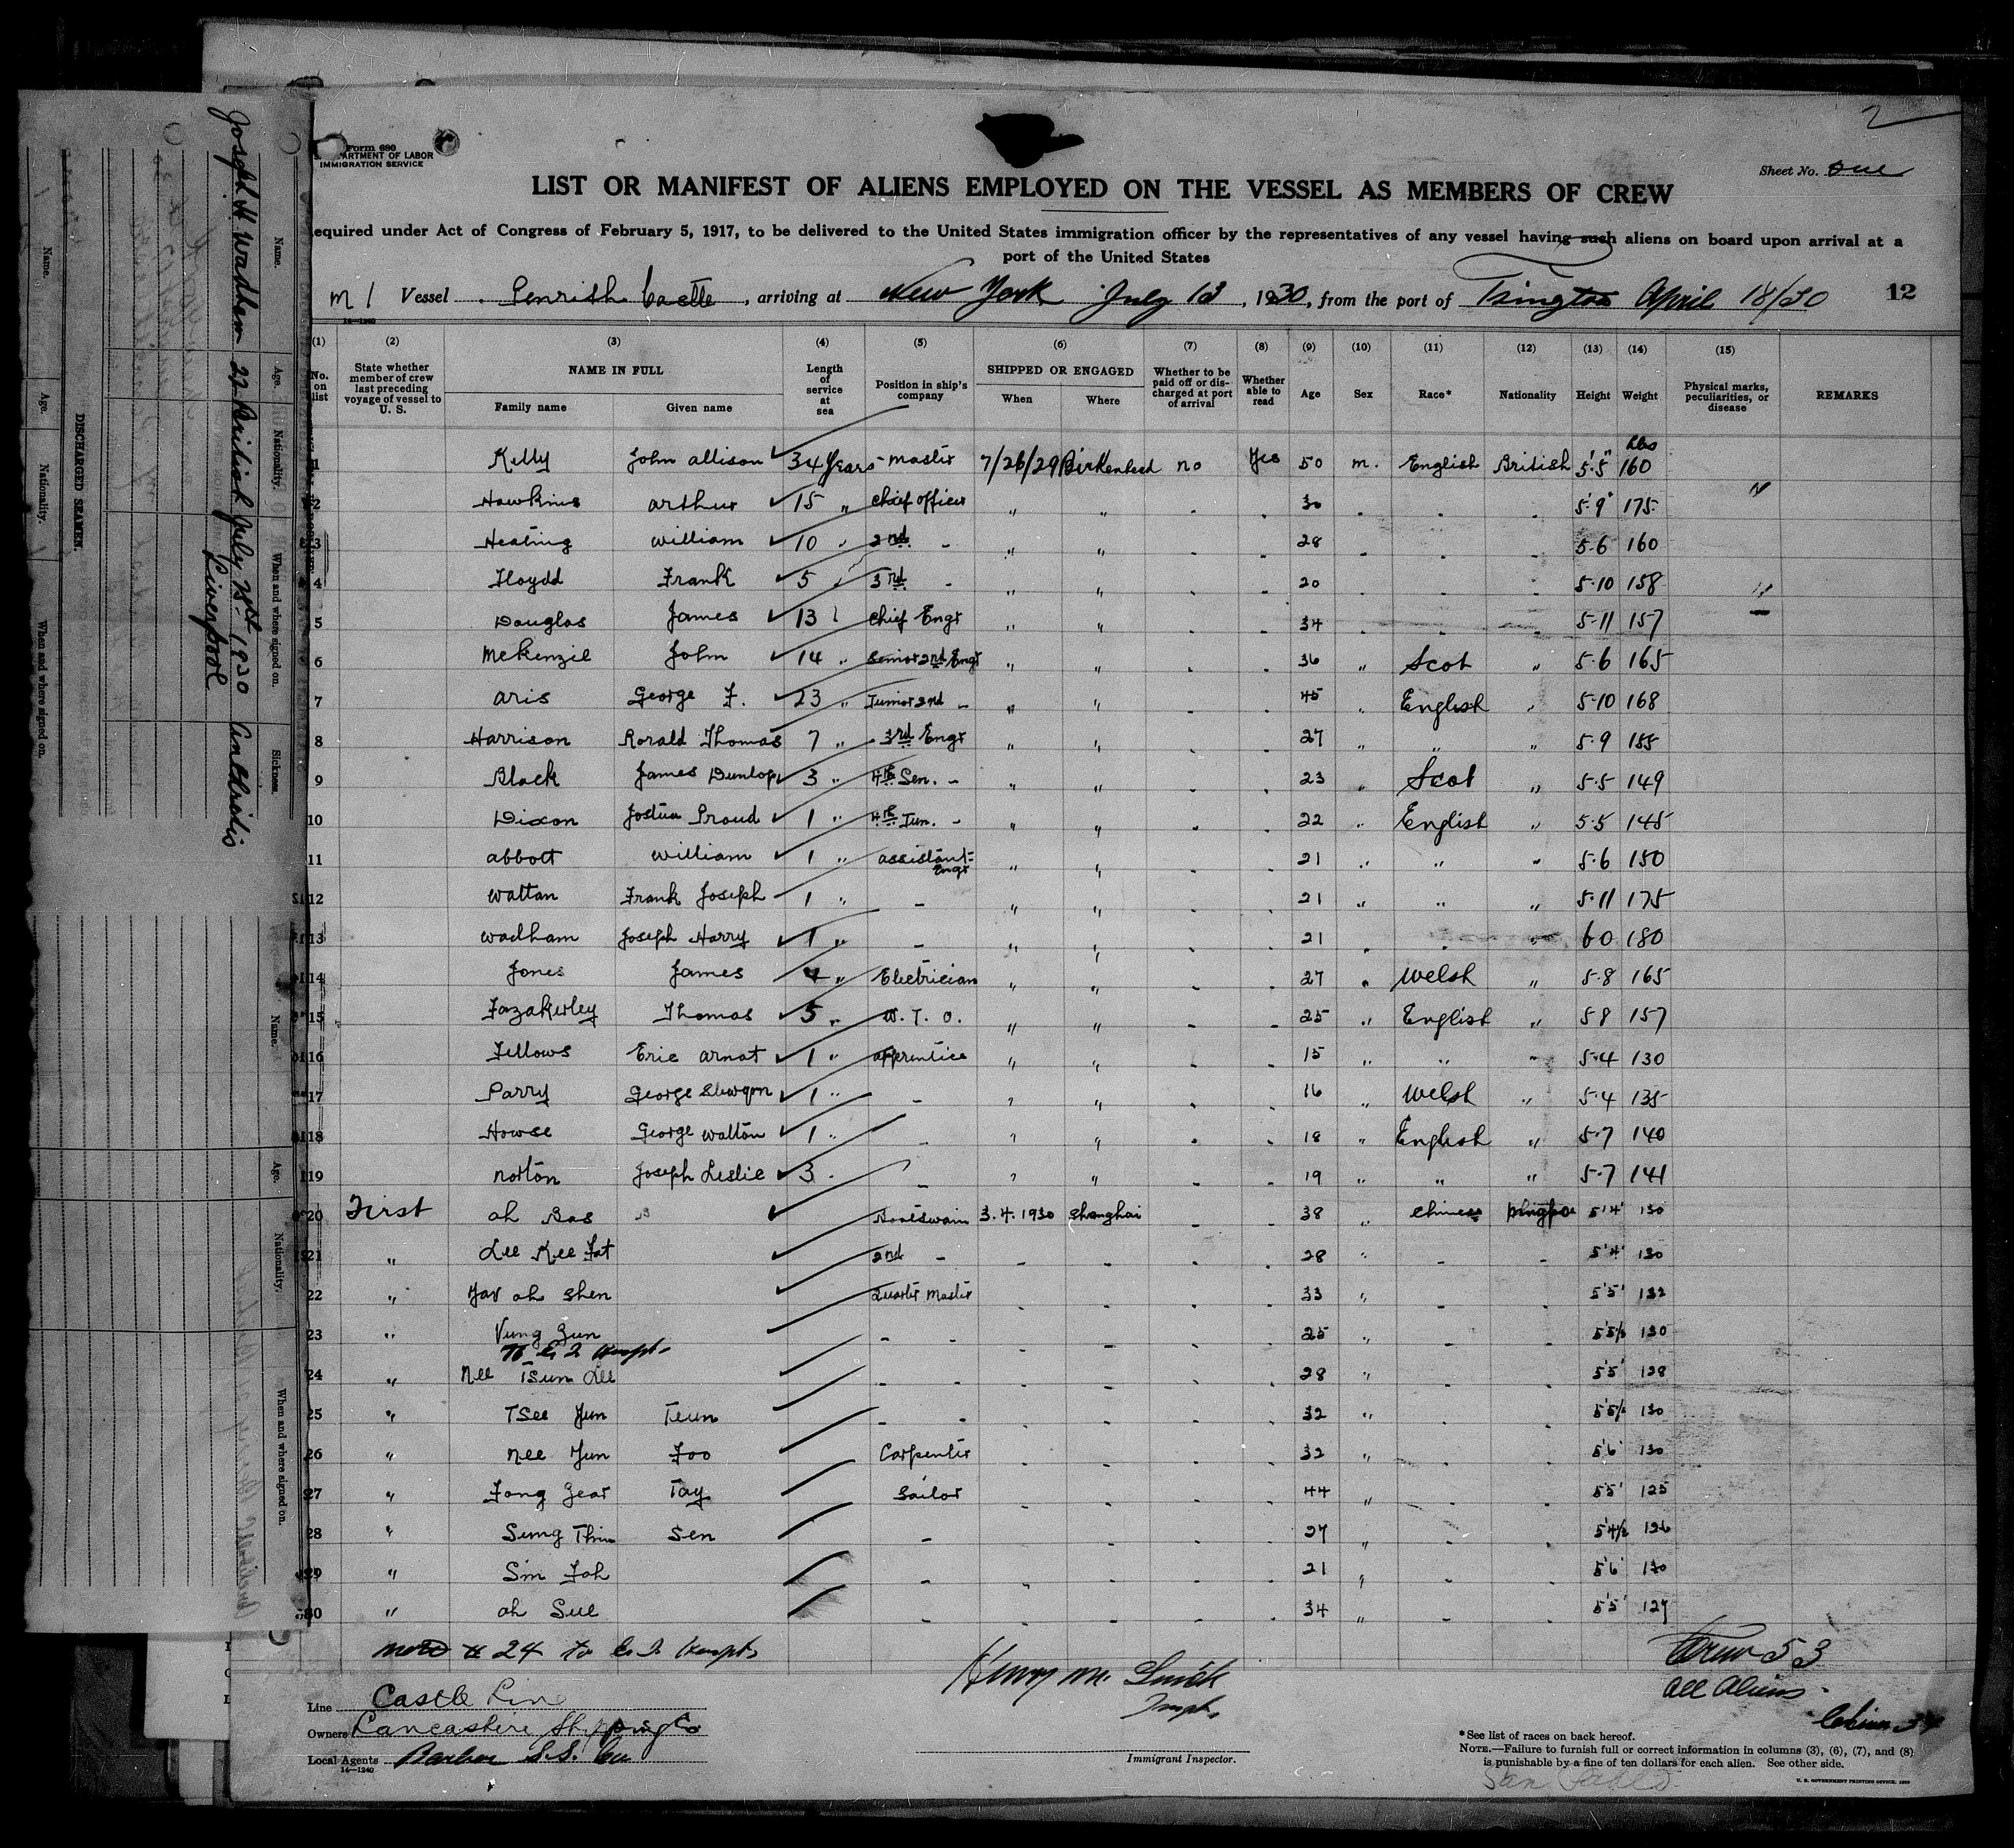 2
Form 680
DEPARTMENT OF LABOR
IMMIGRATION SERVICE
Sheet No. one
LIST OR MANIFEST OF ALIENS EMPLOYED ON THE VESSEL AS MEMBERS OF CREW
equired under Act of Congress of February 5, 1917, to be delivered to the United States immigration officer by the representatives of any vessel having such aliens on board upon arrival at a
port of the United States
m 1 Vessel Penrith Castle, arriving at New York July 13, 1930, from the port of Tsingtao April 18/30 12
14—1240
(1) (2) (3) (4) (5) (6) (7) (8) (9) (10) (11) (12) (13) (14) (15)
No. on list State whether member of crew last preceding voyage of vessel to U. S. NAME IN FULL Family name Given name Length of service at sea Position in ship's company SHIPPED OR ENGAGED When Where Whether to be paid off or discharged at port of arrival Whether able to read Age Sex Race* Nationality Height Weight Physical marks, peculiarities, or disease REMARKS
1 Kelly John Allison 34 years master 7/26/29 Birkenhead no Yes 50 m. English British 5'5" 160 lbs
2 Hawkins Arthur 15 " chief officer " " - 30 5'9" 175
3 Healing William 10 " 2nd - " " - 28 5.6 160
4 Floydd Frank 5 3rd - " " - 20 5.10 158
5 Douglas James 13 chief Engr " " - 34 5.11 157
6 McKenzie John 14 " Senior 2nd Engr " " - 36 " Scot " 5.6 165
7 Aris George F. 23 " Junior 2nd - " " - 45 English " 5.10 168
8 Harrison Ronald Thomas 7 " 3rd Engr " " - 27 " " " 5.9 155
9 Black James Dunlop 3 " 4th Sen. - " " - 23 " Scot " 5.5 149
10 Dixon Joshua Proud 1 " 4th Jun. - " " - 22 " English " 5.5 145
11 Abbott William 1 " assistant Engr " " - 21 " " " 5.6 150
12 Walton Frank Joseph 1 " - " " - 21 " " " 5.11 175
13 Wadham Joseph Harry 1 " - " " - 21 " 6 0 180
14 Jones James 4 " Electrician " " - 27 " Welsh " 5.8 165
15 Fazakerley Thomas 5 " W. T. O. " " - 25 " English " 5 8 157
16 Fellows Eric Arnot 1 " apprentice " " - 15 " " " 5.4 130
17 Parry George 1 " - " " - 16 " Welsh " 5.4 135
18 Howse George Walton 1 " - " " - 18 " English " 5.7 140
19 Norton Joseph Leslie 3 - " " - 19 " " " 5.7 141
20 First Ah Bas Boatswain 3.4.1930 Shanghai - 38 " Chinese Ningpo 5'4" 130
21 " Lee Kee Fat 2nd - - - - 28 " - - 5'4" 130
22 " Yar Ah Shen Quarter Master - - - 33 " - - 5'5" 132
23 " Vung Zun - - - - - 25 " - - 5'5½ 130
24 " Nee Tsun Lee - - - - - 28 " - - 5'5" 128
25 " Tsee Yun Teun - - - - - 32 " - - 5'5½ 130
26 " Nee Yun Foo Carpenter - - - 32 " - - 5'6" 130
27 " Fong Gear Tay Sailor - - - 44 " - - 5'5" 125
28 " Sung Thin Sen - - - - 27 " - - 5'4½ 126
29 " Sin Foh - - - - 21 " - - 5'6" 130
30 " Ah Sue - - - - 34 " - - 5'5" 127
24 to
Henry M. Smith
Insp.
Crew 53
All Aliens
Line Castle Line
Owners Lancashire Shipping Co
Local Agents Barber S.S. Co
14—1240
Immigrant Inspector.
*See list of races on back hereof.
NOTE.—Failure to furnish full or correct information in columns (3), (6), (7), and (8)
is punishable by a fine of ten dollars for each alien. See other side.
U. S. GOVERNMENT PRINTING OFFICE
San Pedro
DISCHARGED SEAMEN.
Name. Age. Nationality. When and where signed on. Sickness.
Joseph H Wadham 22 British July 25th 1930 Liverpool
Name. Age. Nationality. When and where signed on.
Name. Age. Nationality. When and where signed on.